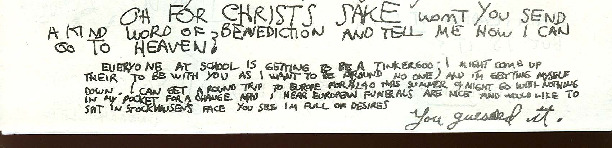 OH FOR CHRISTS SAKE WONT YOU SEND
A KIND WORD OF BENEDICTION AND TELL ME HOW I CAN
GO TO HEAVEN?
EVERYONE AT SCHOOL IS GETTING TO BE A TINKERGOD; I MIGHT COME UP
THEIR TO BE WITH YOU AS I WANT TO BE AROUND NO ONE) AND IM GETTING MYSELF
DOWN. I CAN GET A ROUND TRIP TO EUROPE FOR THIS SUMMER & MIGHT GO WITH NOTHING
IN MY POCKET FOR A CHANGE. AND I HEAR EUROPEAN FUNERALS ARE NICE AND WOULD LIKE TO
SPIT IN STOCKHAUSENS FACE YOU SEE IM FULL OF DESIRES
You guessed it.